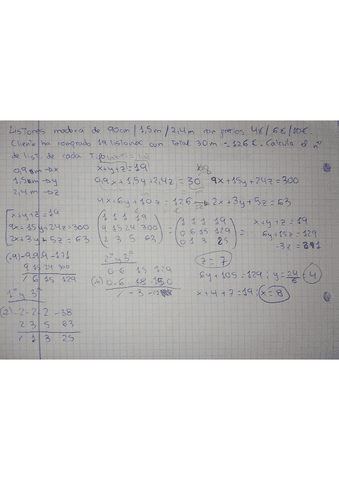 Listones madera de 90cm/1,5m/2,4m con precios 4€/6€/10€.
Cliente ha comprado 19 listones con total 30m = 126€. Calcula el nº
de list. de cada tipo
0,9m→x
1,5m→y
2,4m→z
x+y+z=19
0,9x+1,5y+2,4z=30
9x+15y+24z=300
4x+6y+10z=126
2x+3y+5z=63
x+y+z=19
9x+15y+24z=300
2x+3y+5z=63
1 1 1 19
9 15 24 300
2 3 5 63
=
1 1 1 19
0 6 15 129
0 1 3 25
=
x+y+z=19
6y+15z=129
(-9) -9 -9 -9 -171
9 15 24 300
/ 6 15 129
1ª y 3ª
(-2) -2 -2 -2 -38
2 3 5 63
/ 1 3 25
2ª y 3ª
0 6 15 129
z=7
6y+105=129; y=24/6=4
x+4+7=19; x=8